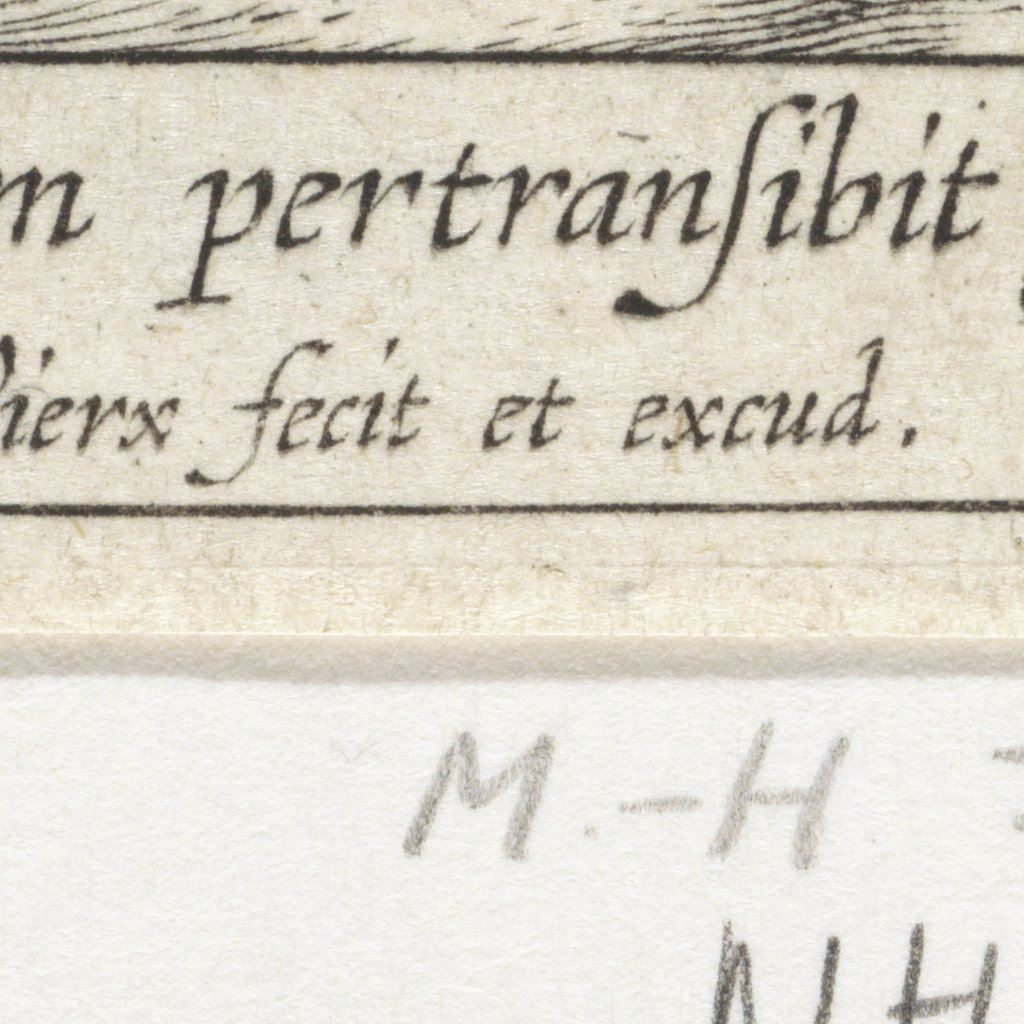 m pertranſibit
ierx fecit et excud.
M.-H
NH